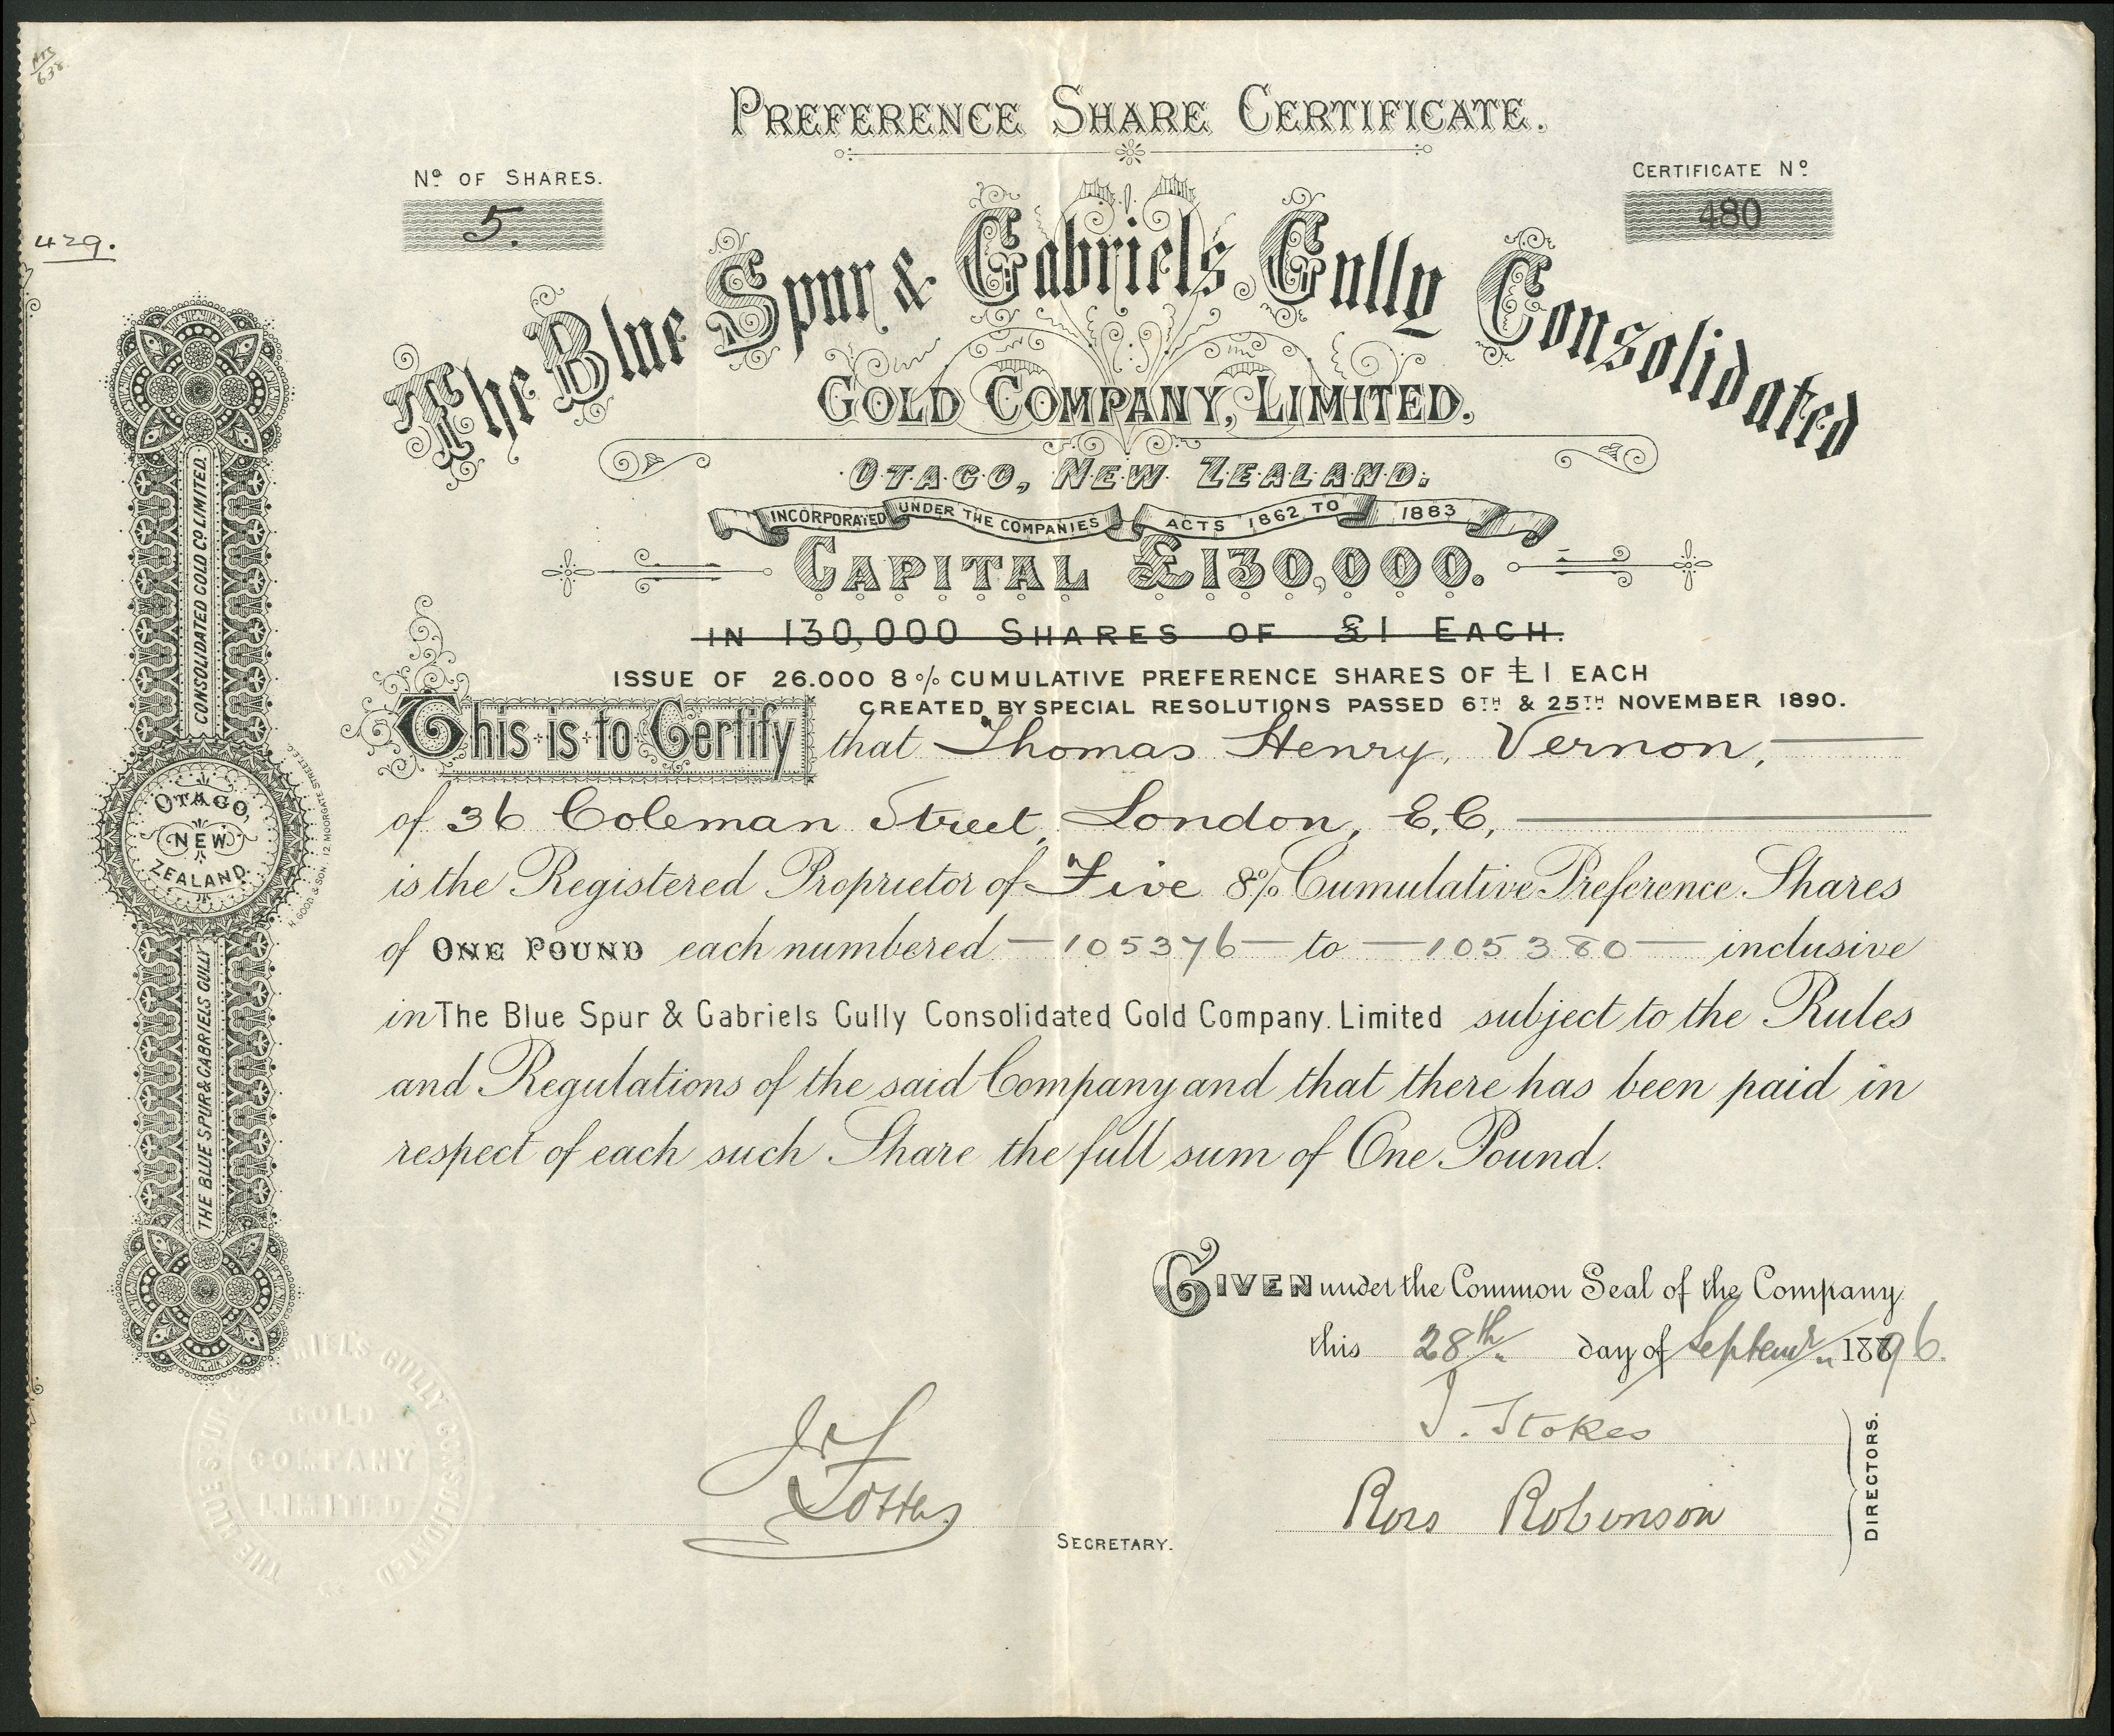 PREFERENCE SHARE CERTIFICATE.
No OF SHARES.
5.
CERTIFICATE No
480
429.
The Blue Spur & Gabriels Gully Consolidated
GOLD COMPANY, LIMITED.
OTAGO, NEW ZEALAND.
INCORPORATED UNDER THE COMPANIES ACTS 1862 TO 1883
CAPITAL £130,000.
IN 130,000 SHARES OF £1 EACH.
ISSUE OF 26.000 8% CUMULATIVE PREFERENCE SHARES OF £1 EACH
CREATED BY SPECIAL RESOLUTIONS PASSED 6TH & 25TH NOVEMBER 1890.
This is to Certify that Thomas Henry, Vernon,
of 36 Coleman Street, London, E.C,
is the Registered Proprietor of Five 8% Cumulative Preference Shares
of ONE POUND each numbered —105376— to —105380— inclusive
in The Blue Spur & Gabriels Gully Consolidated Gold Company. Limited subject to the Rules
and Regulations of the said Company and that there has been paid in
respect of each such Share the full sum of One Pound.
GIVEN under the Common Seal of the Company
this 28th day of Septemr 1896.
J. Stokes
Ross Robinson
DIRECTORS.
SECRETARY.
THE BLUE SPUR & GABRIELS GULLY
CONSOLIDATED GOLD CO LIMITED.
OTAGO,
NEW
ZEALAND.
H. GOOD & SON. 12, MOORGATE STREET, E.C.
THE BLUE SPUR GABRIEL'S GULLY CONSOLIDATED
GOLD
COMPANY
LIMITED